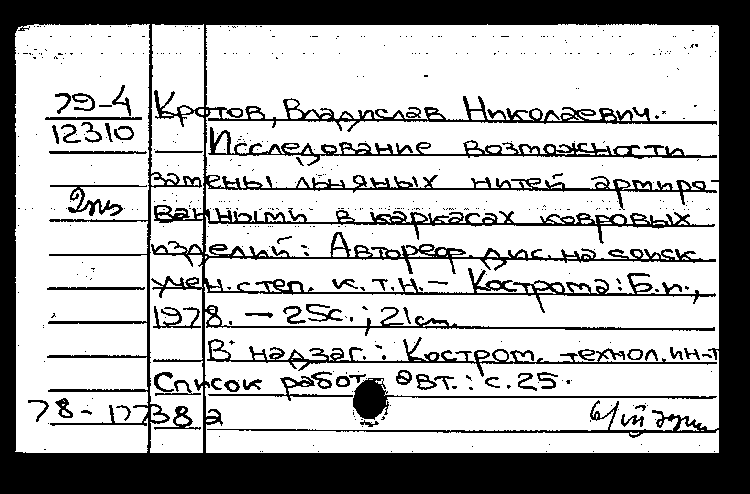 79-4 Кротов, Владислав Николаевич.
12310 Исследование возможности
замены льняных нитей армиро-
2пз ванными в каркасах ковровых
изделий: Автореф. дис. на соиск.
учен. степ. к.т.н. – Кострома: Б.и.,
1978. – 25с.; 21см.
В надзаг.: Костром. технол. ин-т
Список работ авт.: с.25.
78-17738а